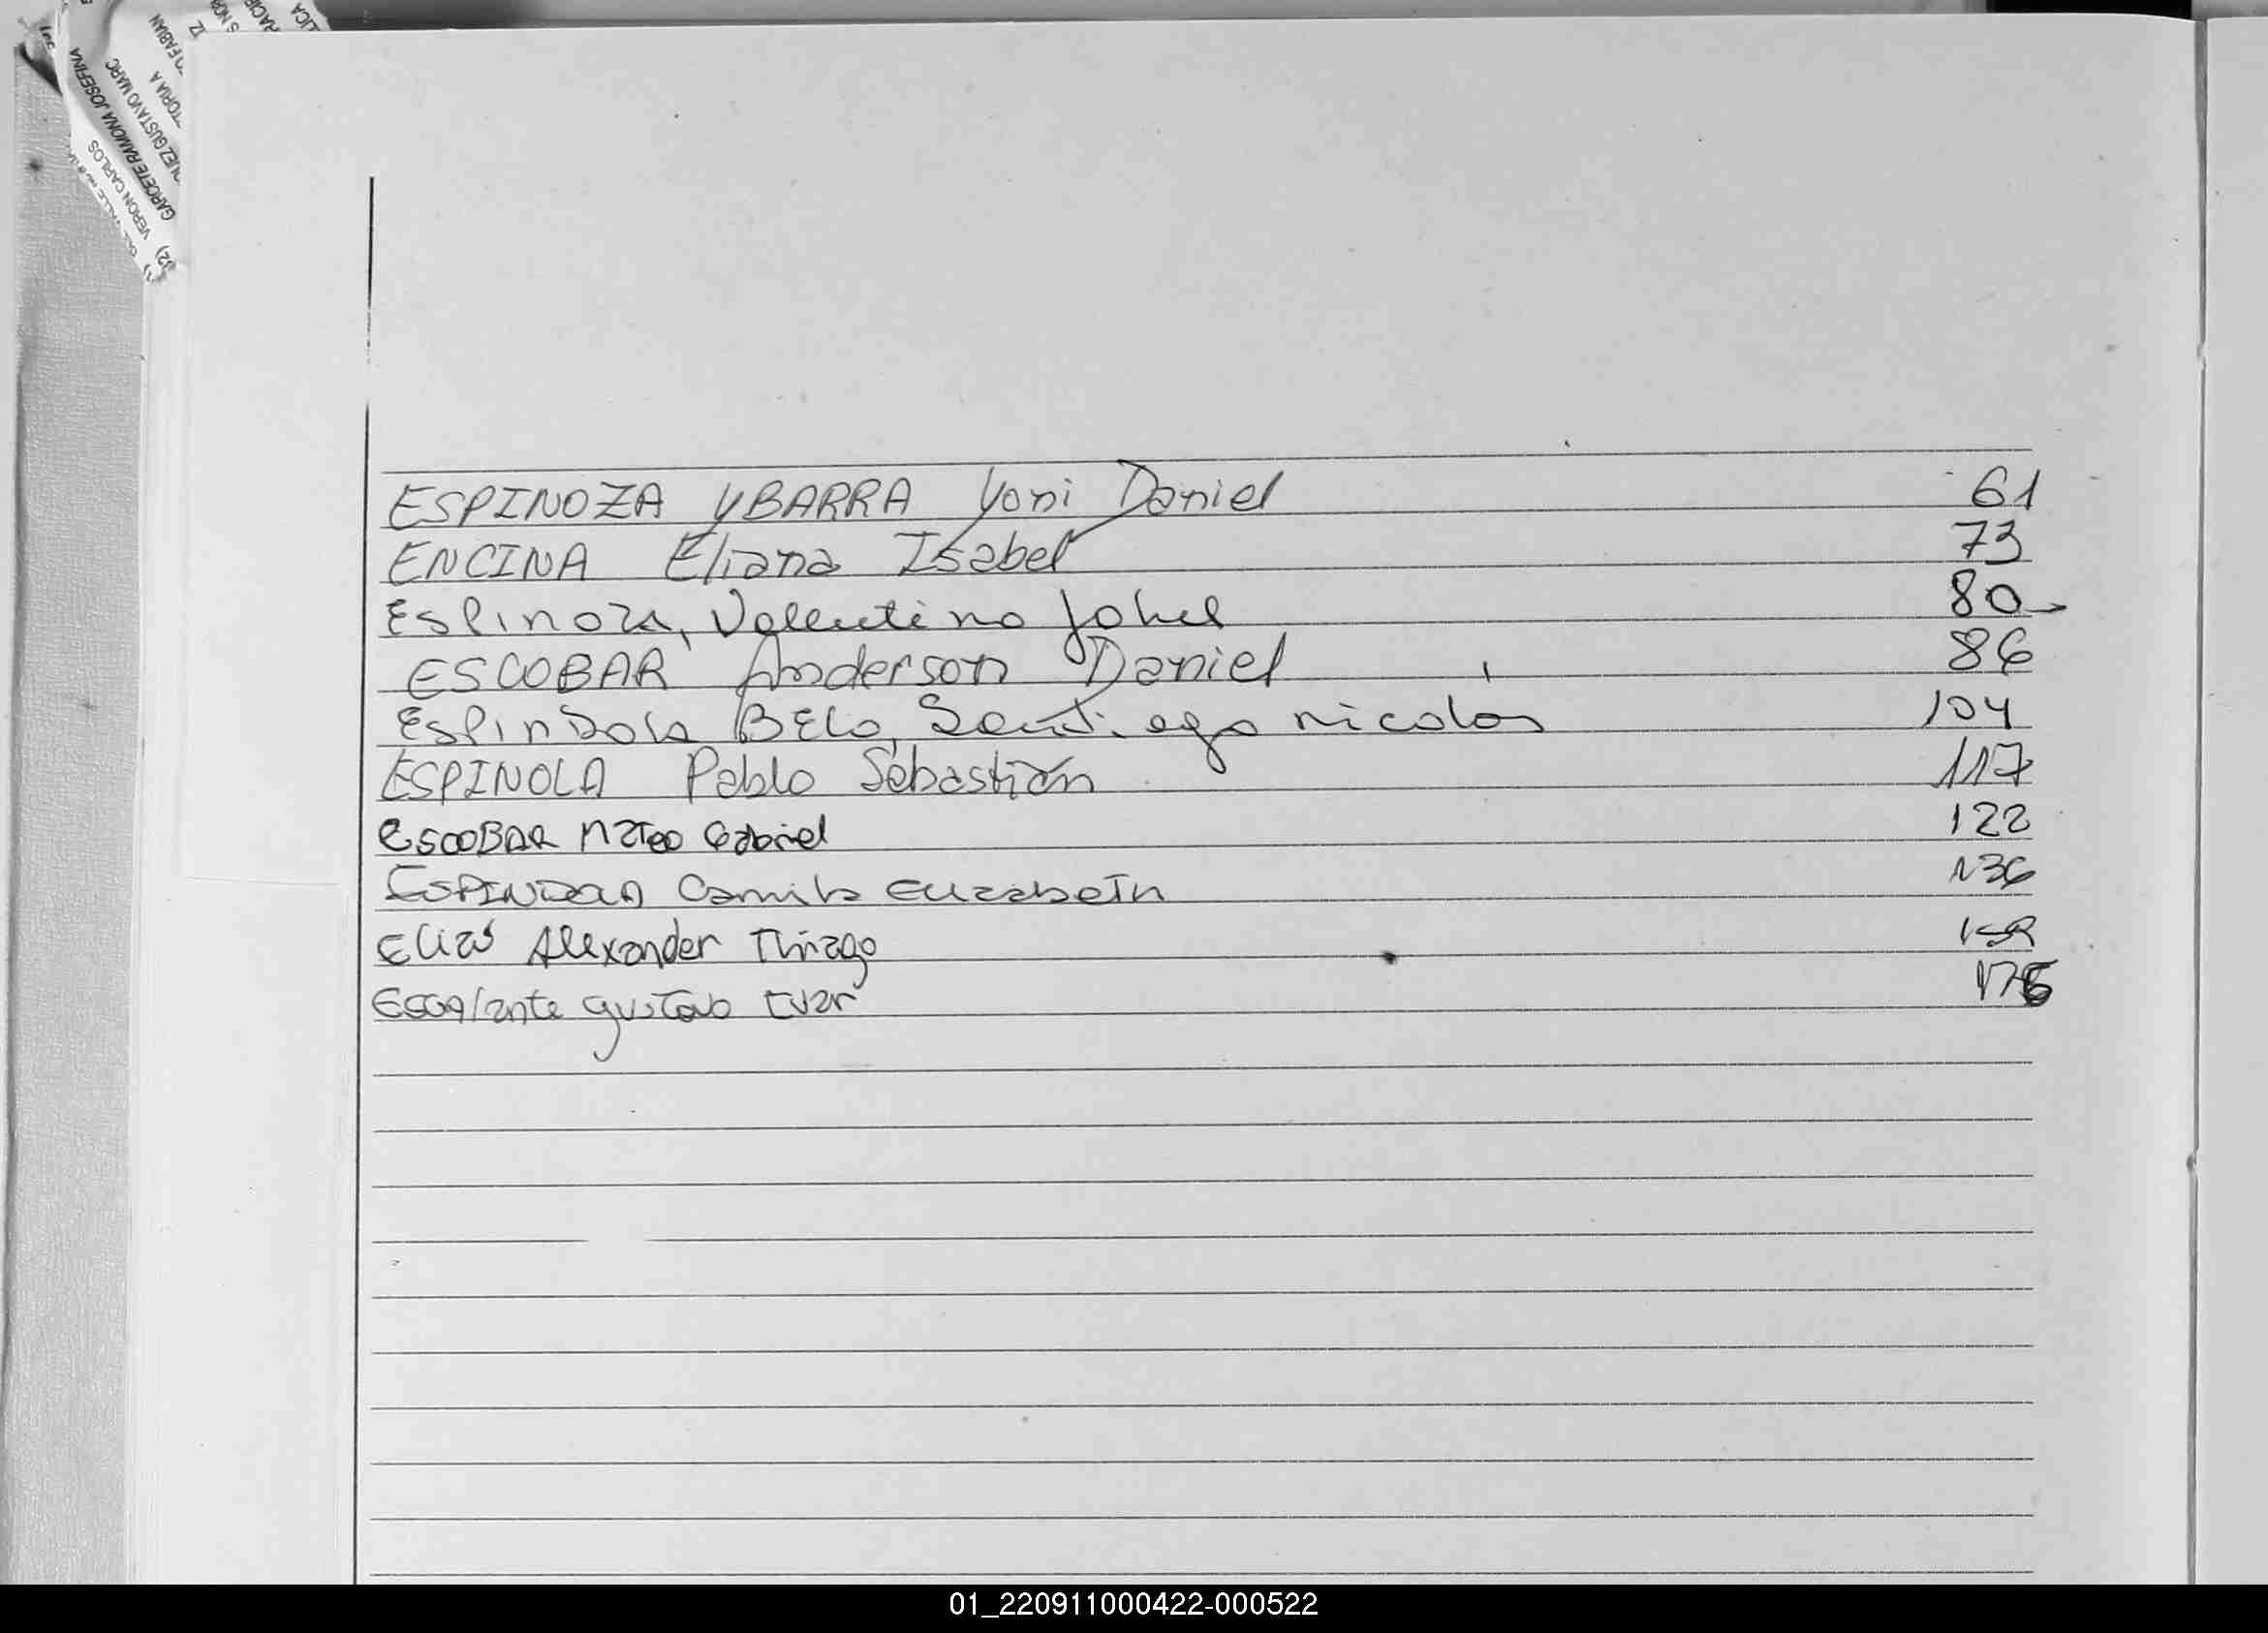 ESPINOZA YBARRA Yoni Daniel 61
ENCINA Eliana Isabel 73
Espinoza, Valentino Johel 80
ESCOBAR Anderson Daniel 86
Espindola BElo, Santiago nicolás 104
ESPINOLA Pablo Sebastián 117
ESCOBAR Mateo Gabriel 122
ESPINDOLA Camila Elizabeth 136
Elias Alexander Thiago
Escalante gustavo Ivar 176
GARCETE RAMONA JOSEFINA
VERON CARLOS
GUSTAVO MARC
01_220911000422-000522